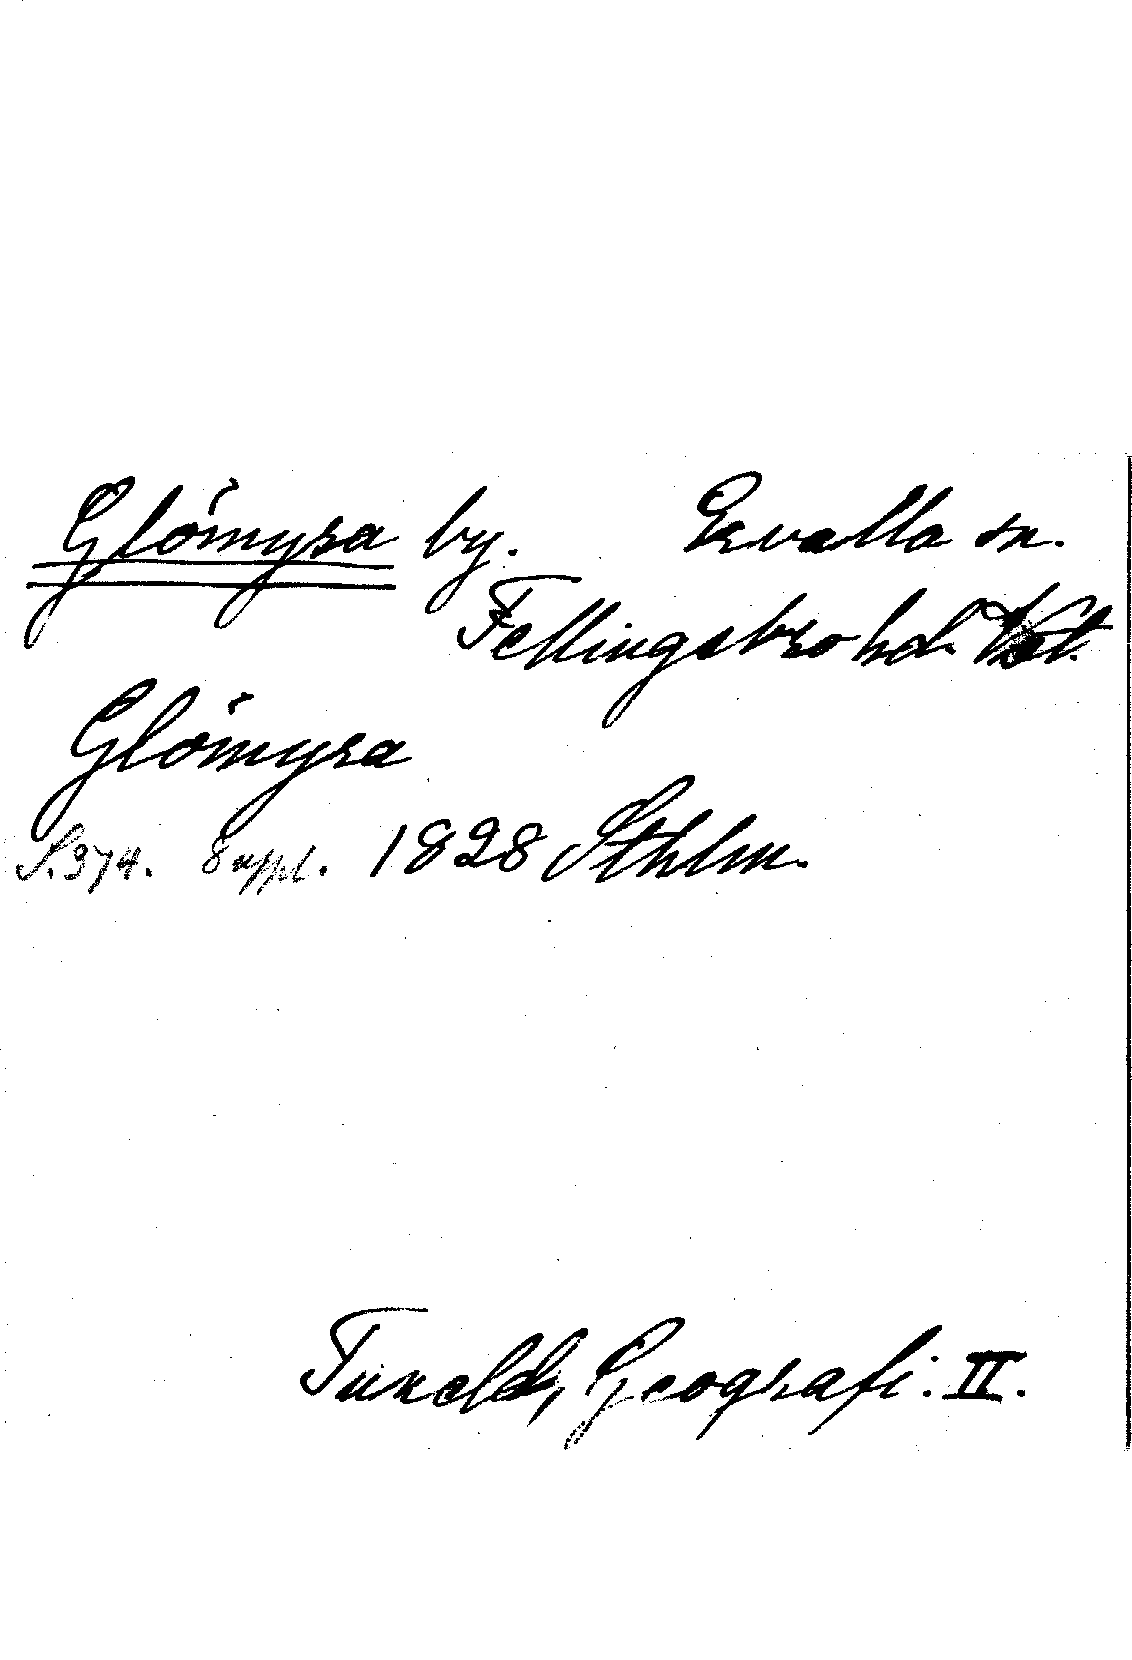 Glömyra by. Ervalla sn.
Fellingsbro hd. Vst.
Glömyra
S. 374. Suppl. 1828 Sthlm.
Tuneld, Geografi. II.